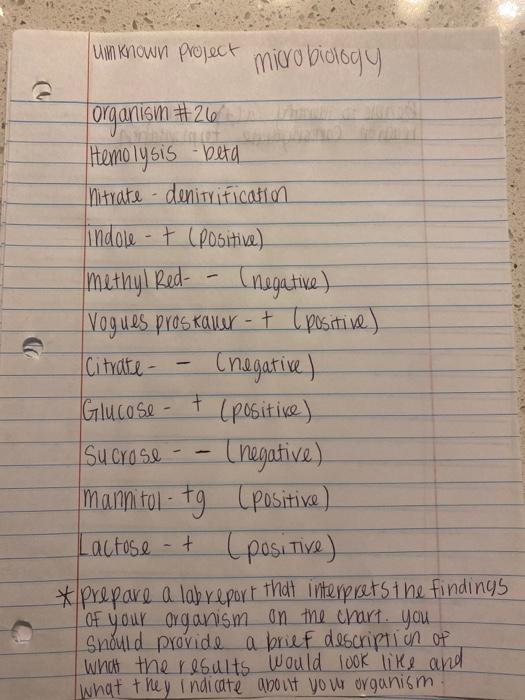 unknown project microbiology
organism #26
Hemolysis - beta
Nitrate - denitrification
indole - + (positive)
methyl Red- - (negative)
Vogues proskauer - + (positive)
Citrate - - (negative)
Glucose - + (positive)
Sucrose - - (negative)
mannitol - +g (positive)
Lactose - + (positive)
* prepare a lab report that interprets the findings
of your organism on the chart. you
should provide a brief description of
what the results would look like and
what they indicate about your organism.